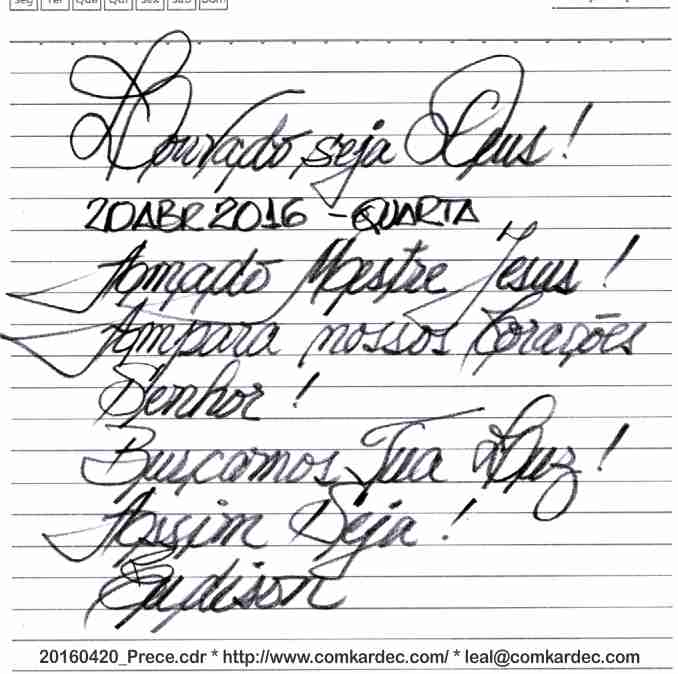 Seg Ter Qua Qui Sex Sáb Dom
Louvado seja Deus!
20ABR2016 - QUARTA
Amado Mestre Jesus!
Ampara nossos Corações
Senhor!
Buscamos Tua Luz!
Assim Seja!
20160420_Prece.cdr * http://www.comkardec.com/ * leal@comkardec.com